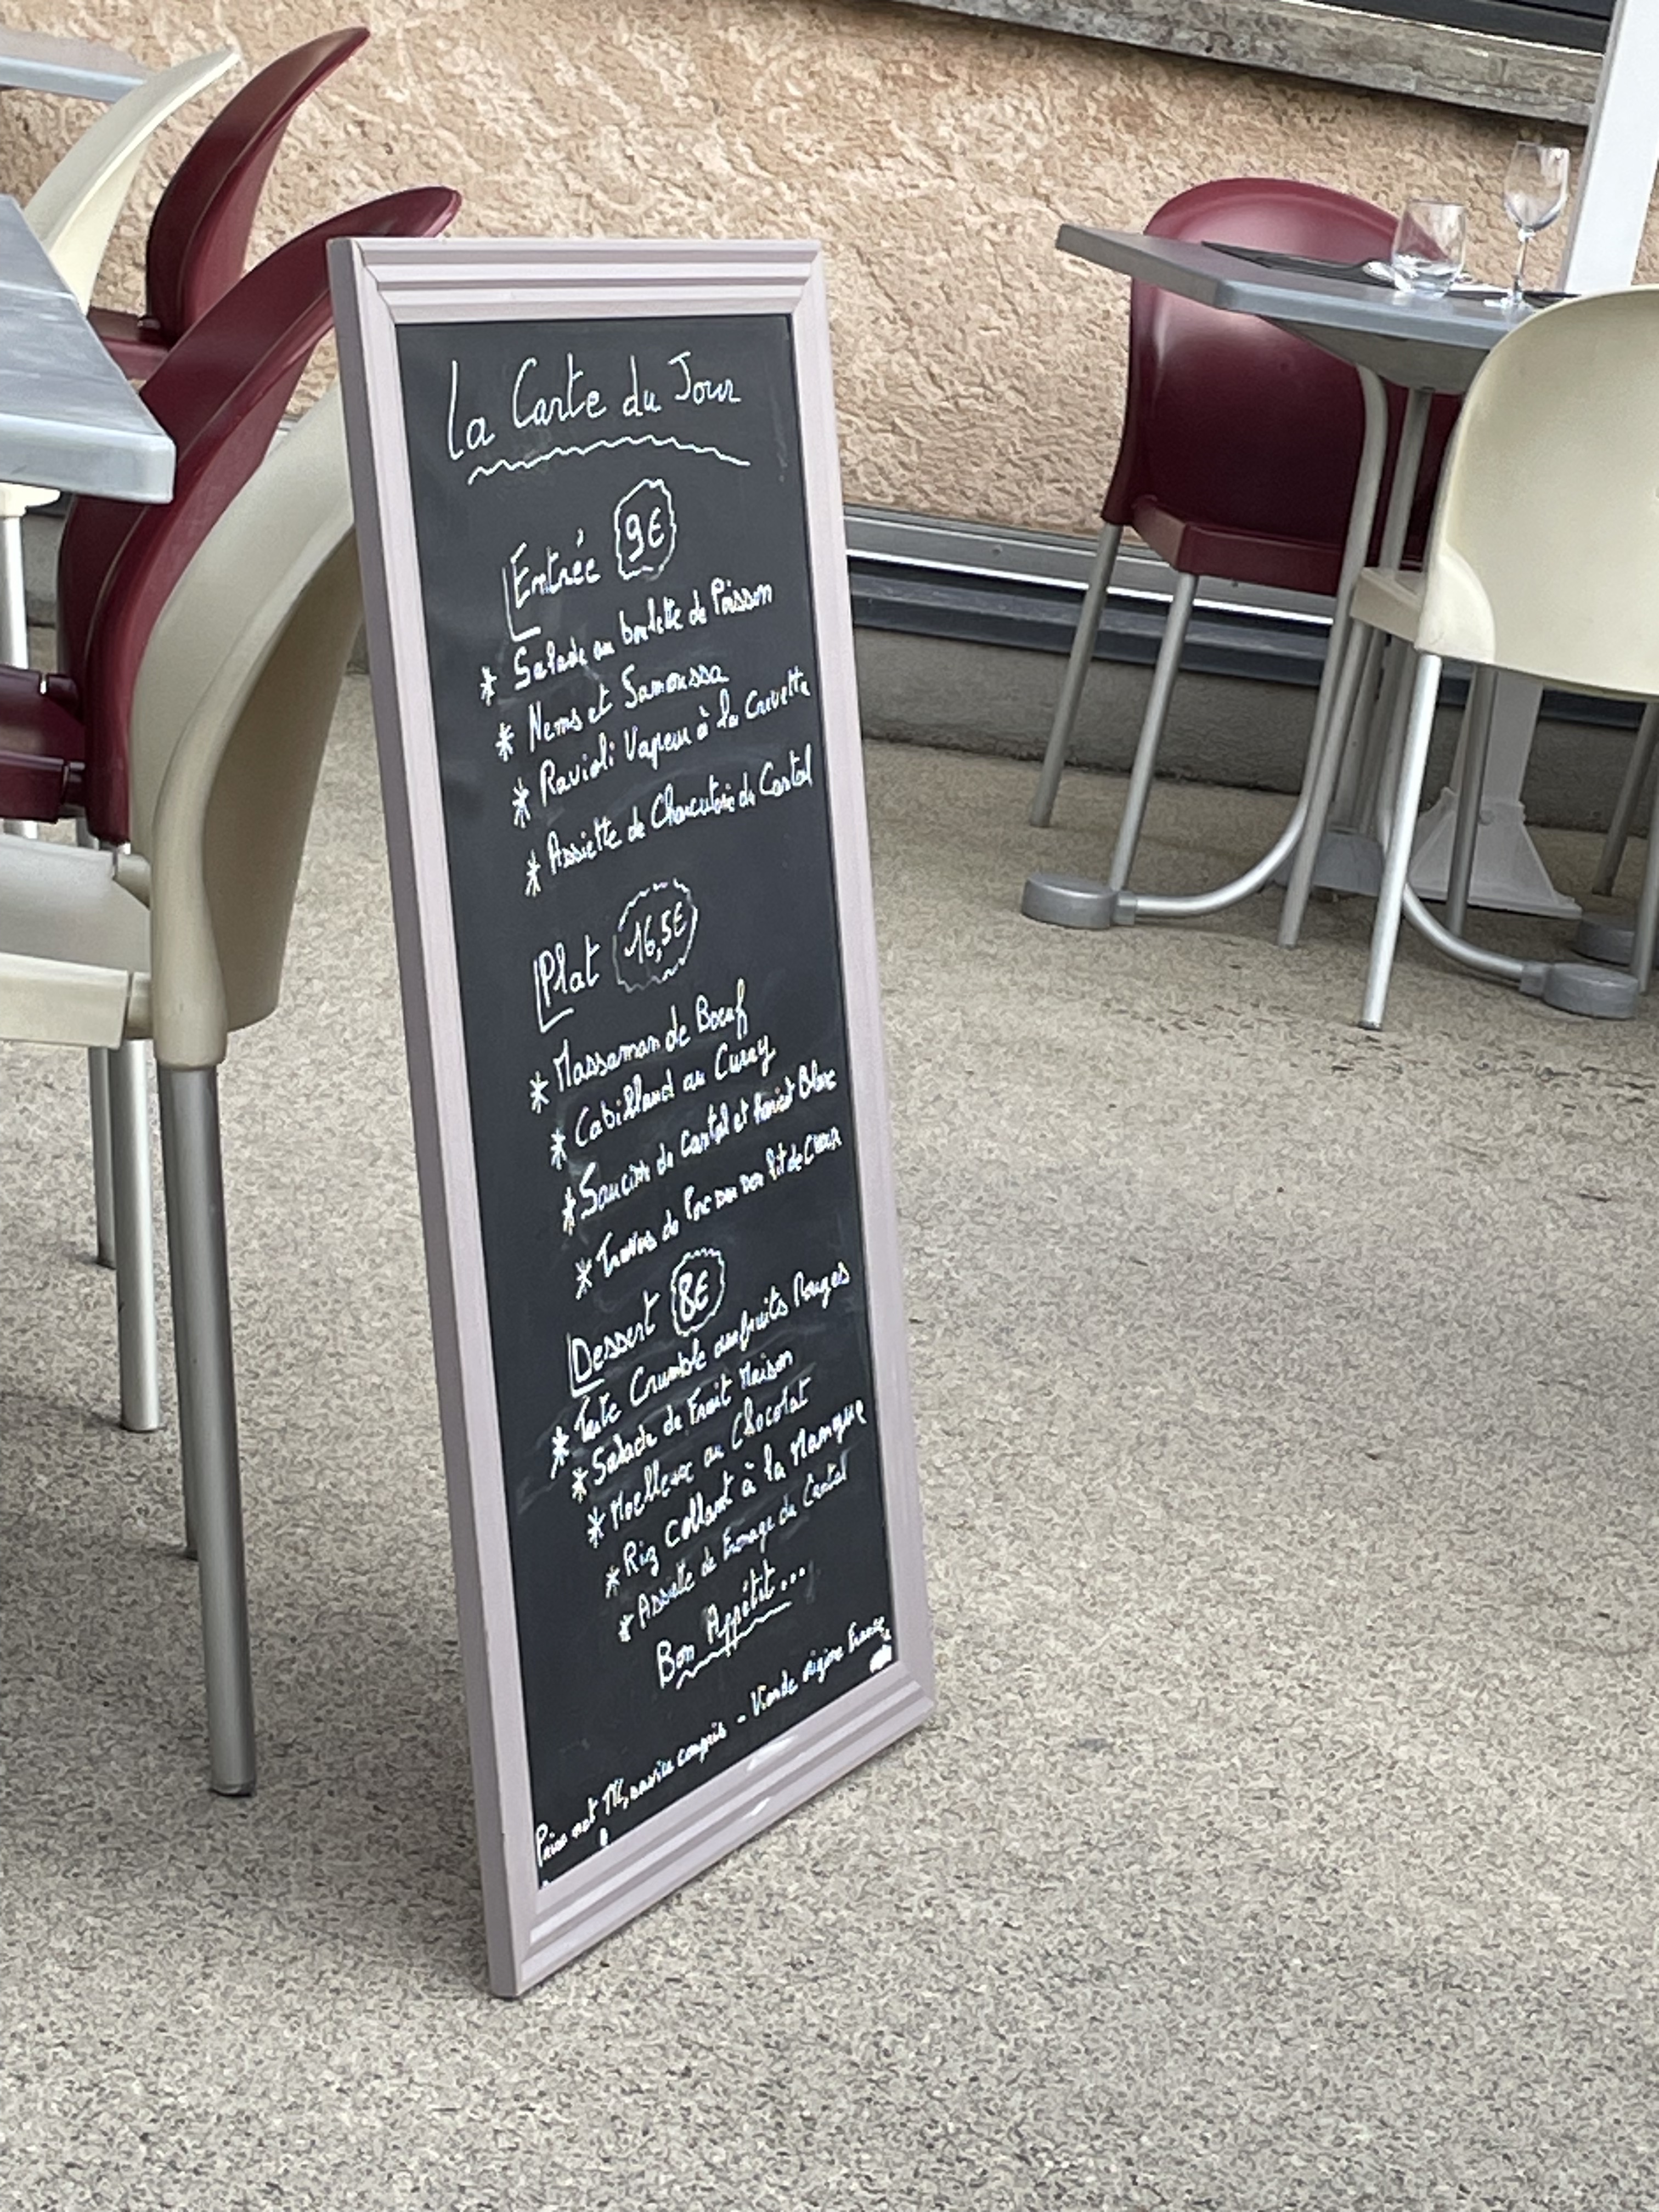 La Carte du Jour
Entrée 9€
* Salade au boulette de Poisson
* Nems et Samoussa
* Ravioli Vapeur à la Crevette
* Assiette de Charcuterie du Cantal
Plat 16,5€
* Massaman de Boeuf
* Cabillaud au Curry
* Saucisse de Cantal et Haricot Blanc
* Travers de Porc sur son lit de Choux
Dessert 8€
* Tarte Crumble aux fruits Rouges
* Salade de Fruit Maison
* Moelleux au Chocolat
* Riz Collant à la Mangue
* Assiette de Fromage du Cantal
Bon Appétit...
Prix net TTC, service compris - Viande origine France